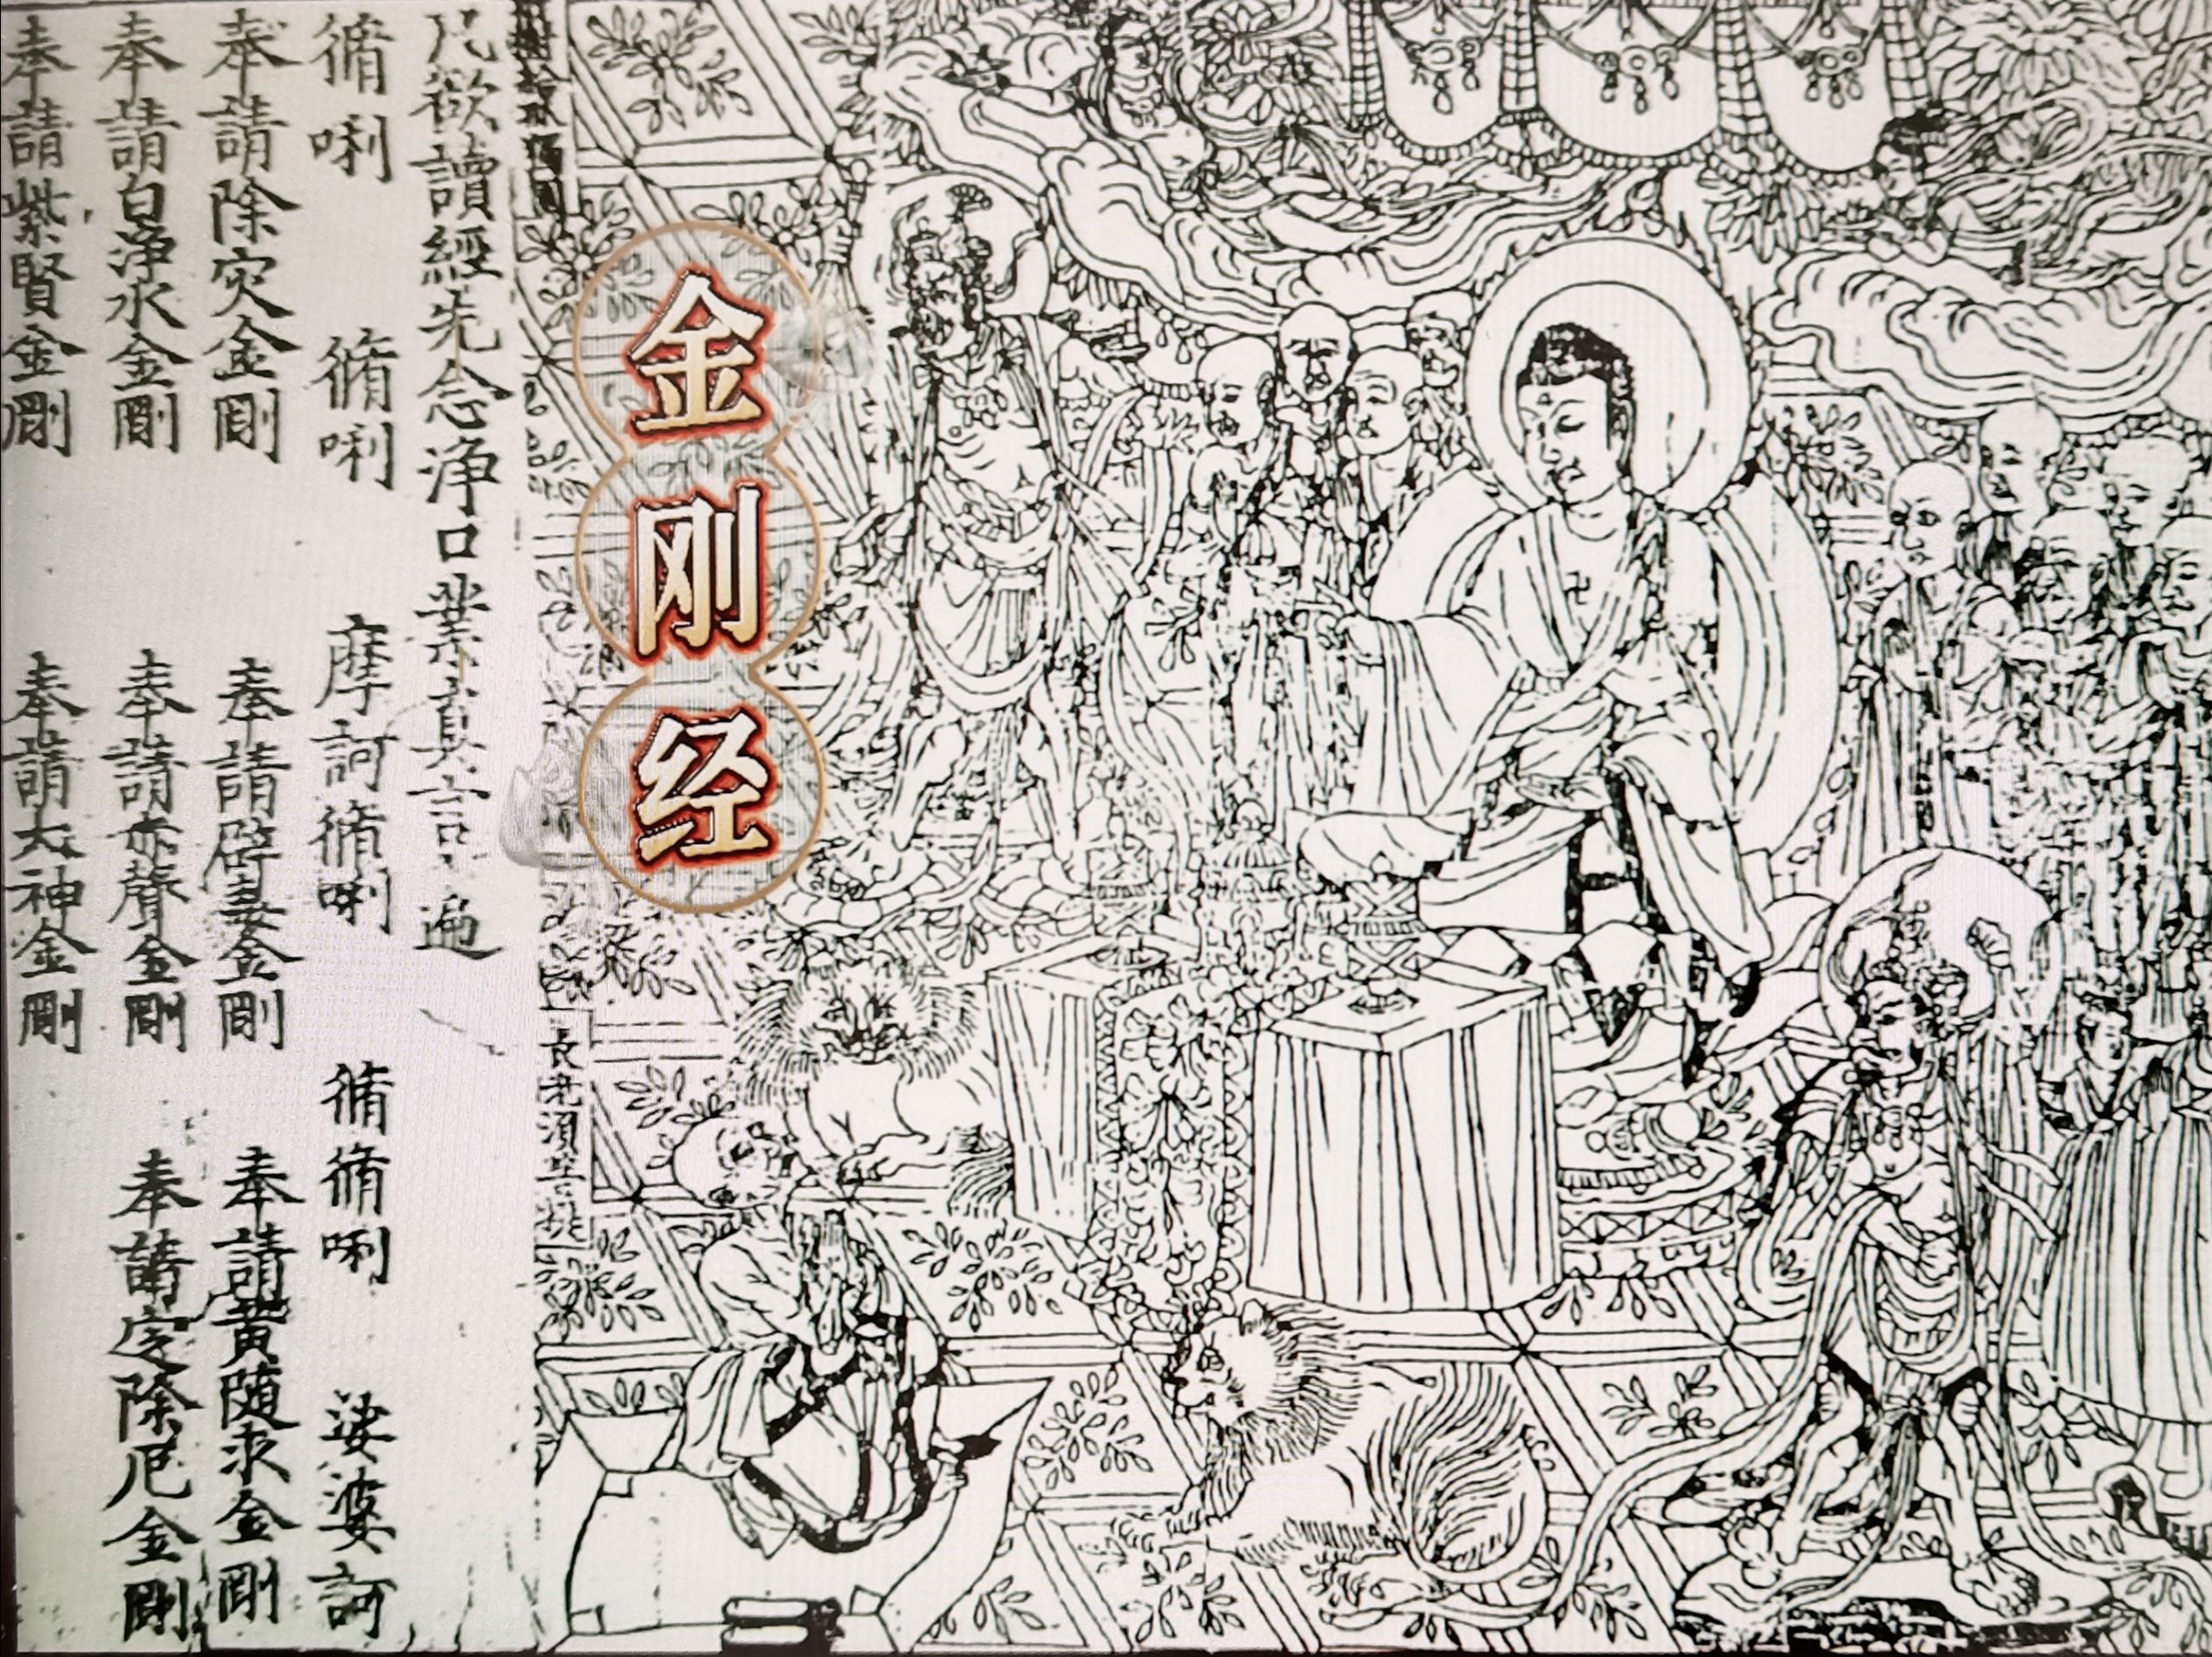 金刚经
長老須菩提
凡欲讀經先念淨口業真言一遍
脩唎 脩唎 摩訶脩唎 脩脩唎 娑婆訶
奉請除灾金剛 奉請辟毒金剛 奉請黄随求金剛
奉請白淨水金剛 奉請赤聲金剛 奉請定除厄金剛
奉請紫賢金剛 奉請大神金剛